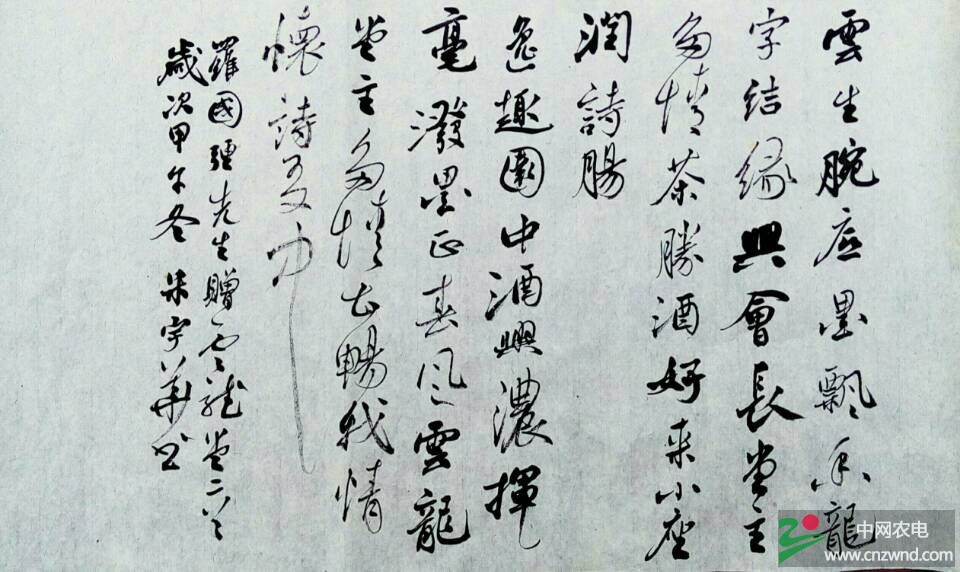 雲生腕底墨飄香龍
字結緣興會長堂主
多情茶勝酒好来小座
潤詩腸
逸趣園中酒興濃揮
毫潑墨正春風雲龍
堂主多情暢我情
懷詩中
羅國先生贈雲龍堂二首
歲次甲午冬 朱宇華书
中网农电
www.cnzwnd.com